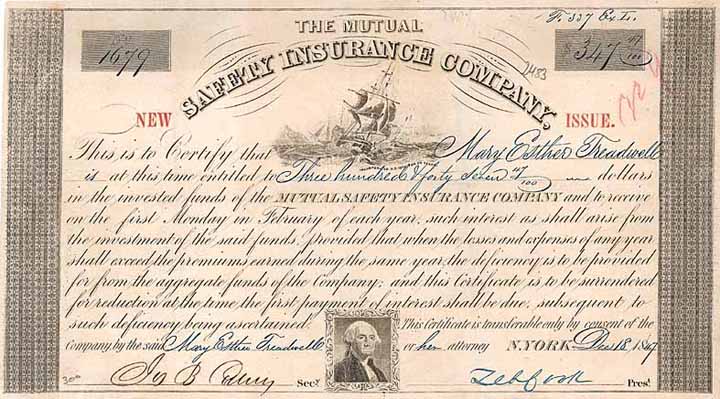 F. 337 Ex. I.
THE MUTUAL
No. 1679
$347 47/100
SAFETY INSURANCE COMPANY.
2453
NEW ISSUE.
This is to Certify that Mary Esther Treadwell
is at this time entitled to Three hundred & forty seven 47/100 dollars
in the invested funds of the MUTUAL SAFETY INSURANCE COMPANY and to receive
on the first Monday in February of each year, such interest as shall arise from
the investment of the said funds, provided that when the losses and expenses of any year
shall exceed the premiums earned during the same year, the deficiency is to be provided
for from the aggregate funds of the Company; and this Certificate is to be surrendered
for reduction at the time, the first payment of interest shall be due, subsequent to
such deficiency being ascertained. This Certificate is transferable only by consent of the
Company, by the said Mary Esther Treadwell or her attorney N. YORK Dec 18, 1847
Secy. Zeb Cook Prest.
300